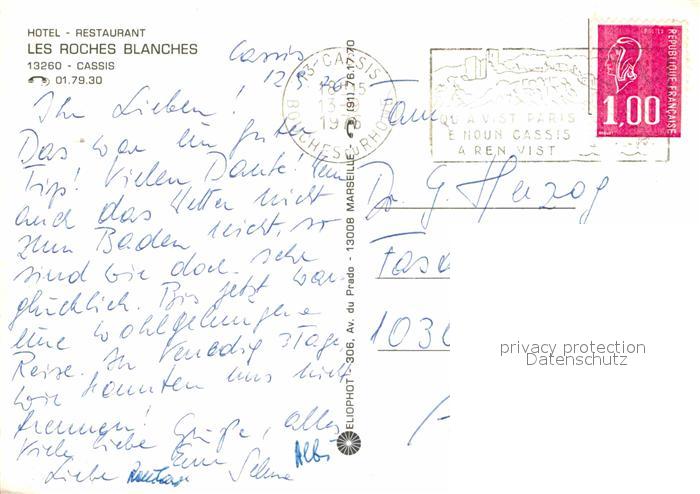 HOTEL - RESTAURANT
LES ROCHES BLANCHES
13260 - CASSIS
01.79.30
Cassis
Ihr Lieben!
Das war ein guter
Tip! Vielen Dank! Wenn
auch das Wetter nicht
zum Baden reicht, so
sind wir doch sehr
glücklich. Bis jetzt war
eine wohlgelungene
Reise. In Venedig 3 Tage
wir konnten uns nicht
trennen!
Viele liebe Grüße, alles
Liebe Eure
Albi
ELIOPHOT - 306, Av. du Prado - 13008 MARSEILLE (91) 76.17.70
13-CASSIS
13-
BOUCHES DU RHONE
QU A VIST PARIS
E NOUN CASSIS
A REN VIST
POSTES
REPUBLIQUE FRANÇAISE
1,00
Fam
Dr. G. Herzog
Fasa
103
privacy protection
Datenschutz